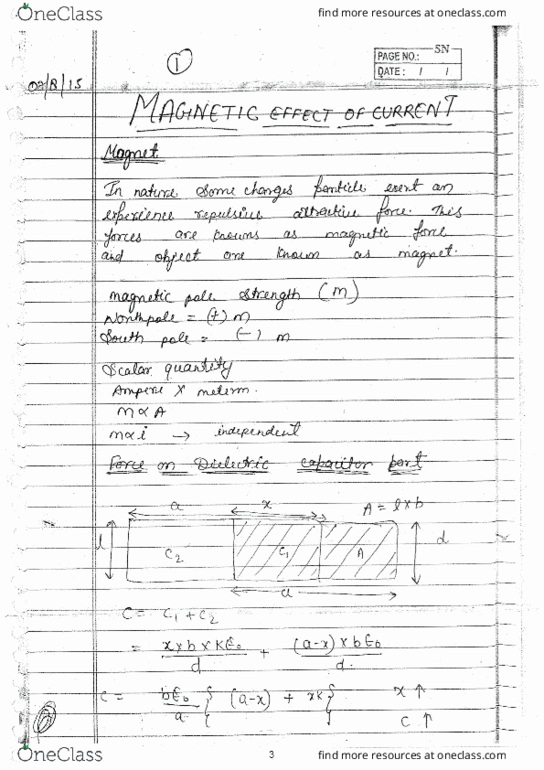 OneClass
find more resources at oneclass.com
1
SN
PAGE NO.:
DATE: / /
MAGINETIC EFFECT OF CURRENT
Magnet
In nature some charges particle exert an
experience repulsive attractive force. This
forces are knowns as magnetic force
and object are known as magnet.
magnetic pole strength (m)
Northpole = (+) m
South pole = (-) m
Scalar quantity
Ampere X meterm.
m ∝ A
m ∝ i → independent
Force on Dielectric capacitor part
a x A = l x b
l C2 C1 A d
a
C = C1 + C2
= x x b x KE0 / d + (a-x) x b E0 / d.
C = bE0 / a { (a-x) + xK } x ↑
C ↑
OneClass
3
find more resources at oneclass.com